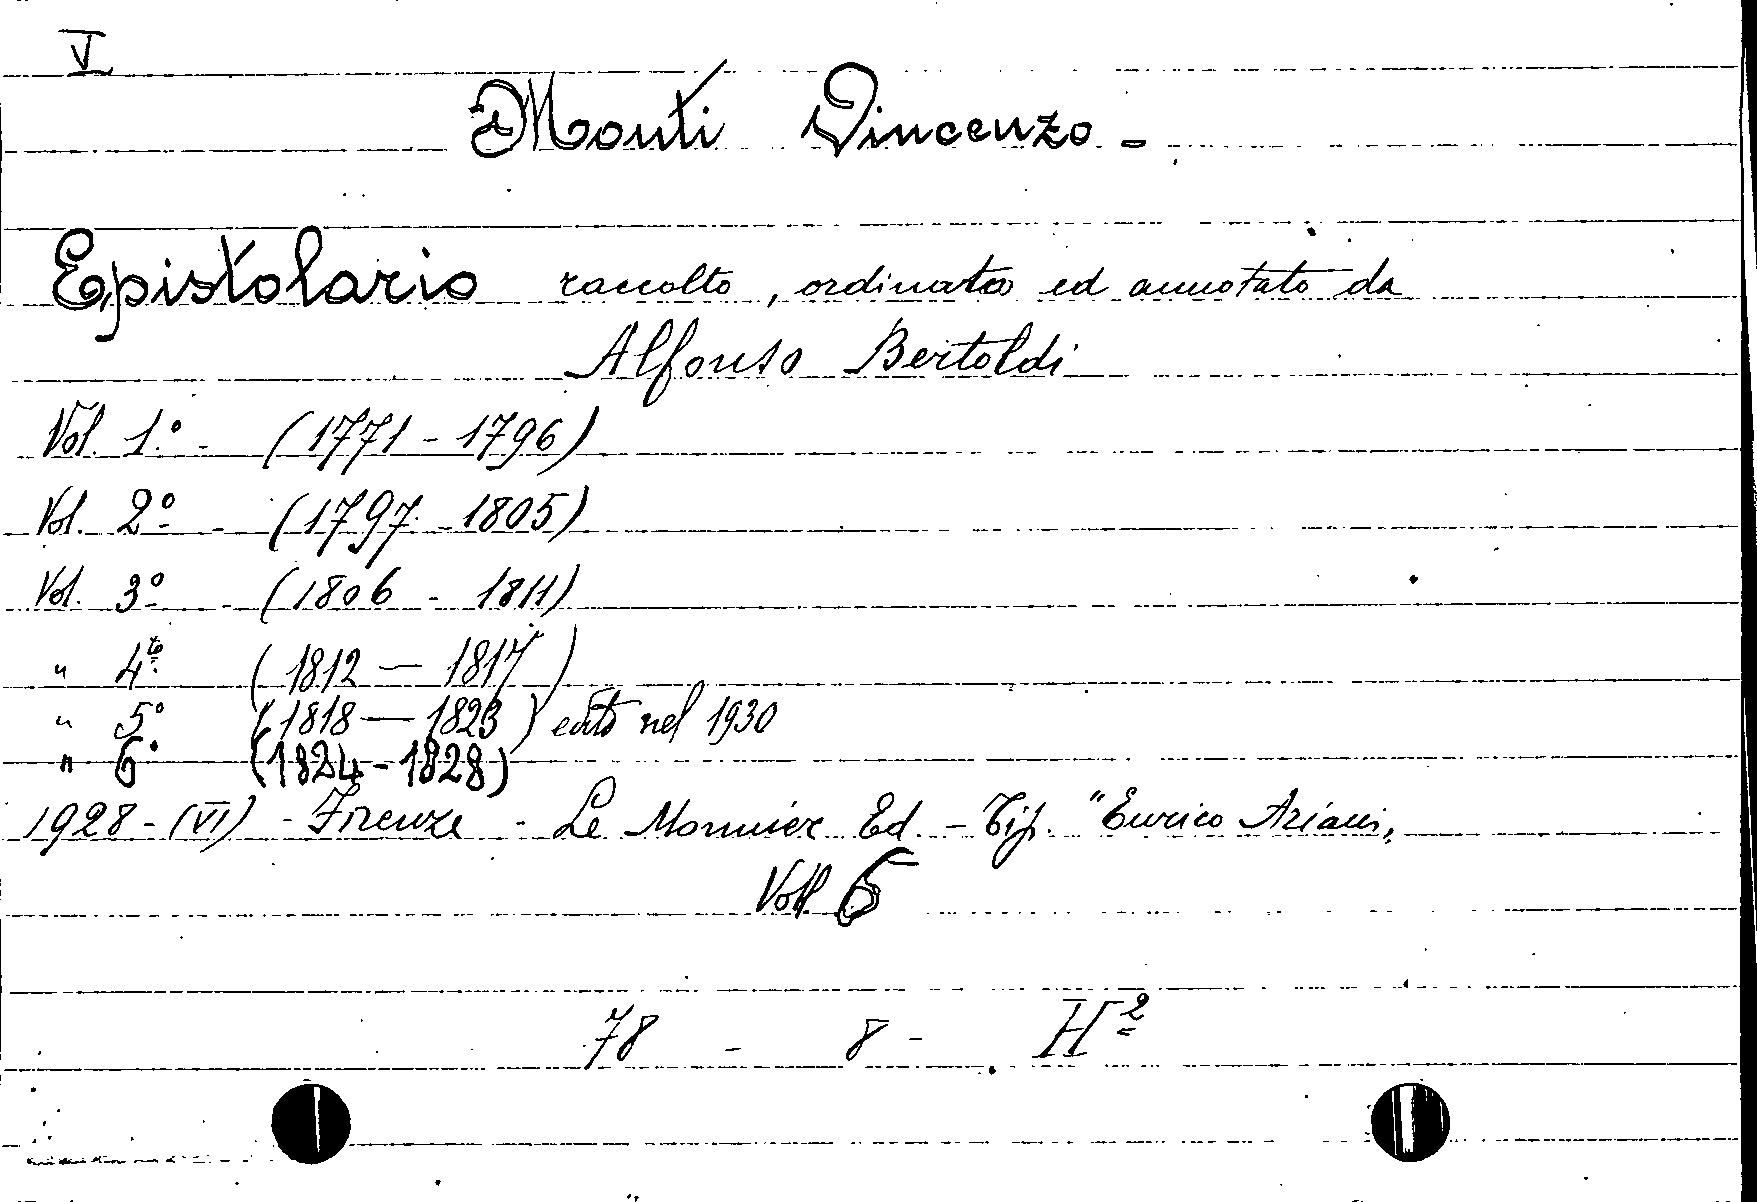 V
Monti Vincenzo -
Epistolario raccolto, ordinato ed annotato da
Alfonso Bertoldi
Vol. 1.º - (1771 - 1796)
Vol. 2º - (1797 - 1805)
Vol. 3º - (1806 - 1811)
" 4to (1812 — 1817)
" 5º (1818 — 1823) edito nel 1930
" 6º (1824 - 1828)
1928 - (VI) - Firenze - Le Monnier Ed. - Tip. "Enrico Ariani"
Voll. 6
78 - 8 - H2